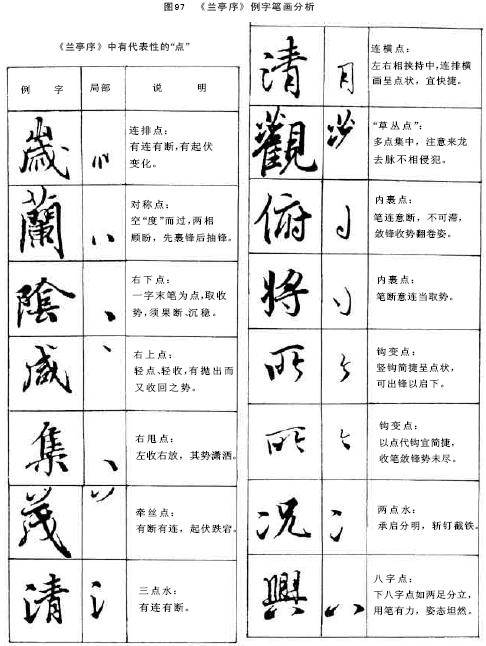 图97 《兰亭序》例字笔画分析
《兰亭序》中有代表性的“点”
例 字 局部 说 明
歲
连排点：
有连有断,有起伏
变化。
蘭
对称点：
空“度”而过,两相
顾盼，先裹锋后抽锋。
陰
右下点：
一字末笔为点,取收
势，须果断、沉稳。
咸
右上点：
轻点、轻收,有抛出而
又收回之势。
集
右甩点：
左收右放，其势潇洒。
茂
牵丝点：
有断有连，起伏跌宕。
清
三点水：
有连有断。
清
连横点：
左右相挟持中,连排横
画呈点状，宜快捷。
觀
“草丛点”：
多点集中，注意来龙
去脉不相侵犯。
俯
内裹点：
笔连意断，不可滞，
敛锋收势翻卷姿。
将
内裹点：
笔断意连当取势。
所
钩变点：
竖钩简捷呈点状，
可出锋以启下。
所
钩变点：
以点代钩宜简捷，
收笔敛锋势未尽。
况
两点水：
承启分明，斩钉截铁。
興
八字点：
下八字点如两足分立，
用笔有力，姿态坦然。